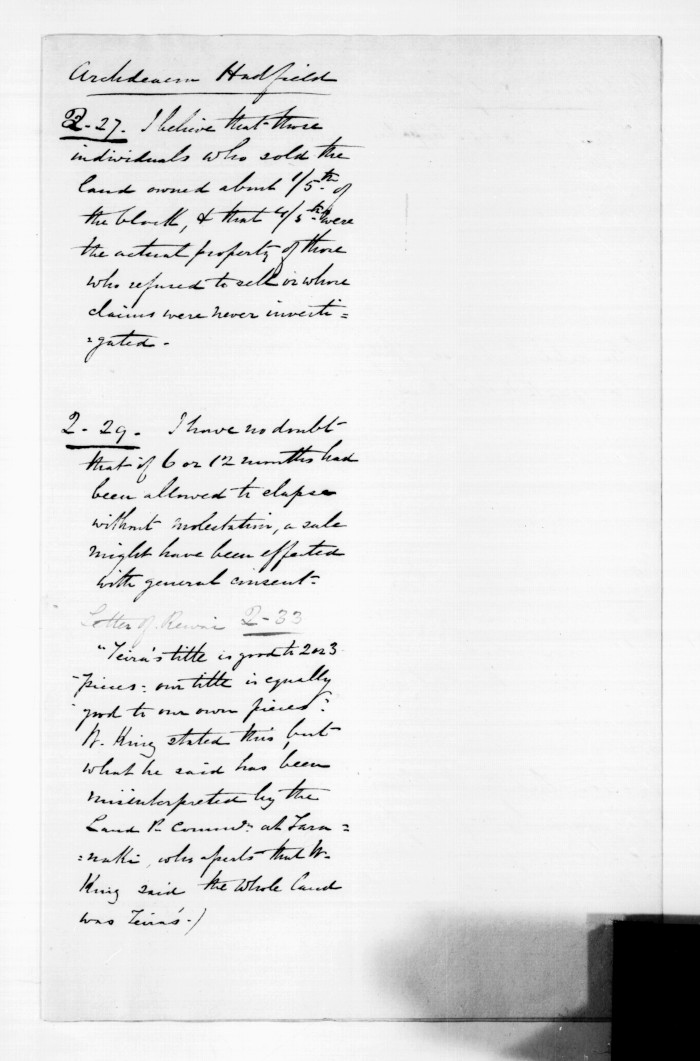 Archdeacon Hadfield
2-27. I believe that those
individuals who sold the
land owned about 1/5th of
the block, & that 4/5ths were
the actual property of those
who refused to sell or whose
claims were never investi=
=gated -
2-29. I have no doubt
that if 6 or 12 months had
been allowed to elapse
without molestation, a sale
might have been effected
with general consent.
Letter of Rewai 2-33
"Teira's title is good to 2 or 3
pieces: our title is equally
good to our own pieces".
W. King stated this, but
what he said has been
misinterpreted by the
Land P. Commr. at Tara=
=naki, who asserts that W.
King said the whole land
was Teira's.)